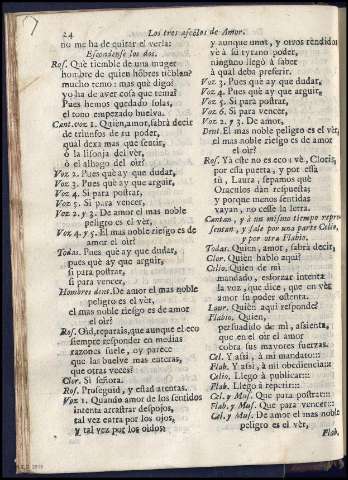 24 Los tres afectos de Amor.
no me ha de quitar el verla:
Escondense los dos.
Ros. Què tiemble de una muger
hombre de quien hōbres tiēblan?
mucho temo: mas què digo!
yo ha de aver cosa que tema?
Pues hemos quedado solas,
el tono empezado buelva.
Cant. voz 1. Quien, amor, sabrà decir
de triunfos de su poder,
qual dexa mas que sentir,
ò la lisonja del vèr,
ò el alhago del oìr?
Voz 2. Pues què ay que dudar,
Voz 3. Pues què ay que arguir,
Voz 4. Si para postrar,
Voz 5. Si para vencer,
Voz 2. y 3. De amor el mas noble
peligro es el vèr,
Voz 4. y 5. El mas noble riesgo es de
amor el oìr?
Todas. Pues què ay que dudar,
pues què ay que arguir,
si para postrar,
si para vencer,
Hombres dent. De amor el mas noble
peligro es el vèr,
el mas noble riesgo es de amor
el oìr?
Ros. Oìd, reparais, que aunque el eco
siempre responder en medias
razones suele, oy parece
que las buelve mas enteras,
que otras veces?
Clor. Si señora.
Ros. Proseguid, y estad atentas.
Voz 1. Quando amor de los sentidos
intenta arrastrar despojos,
tal vez entra por los ojos,
y tal vez por los oidos:
y aunque unos, y otros rendidos
vè à su tyrano poder,
ninguno llegò à saber
à qual deba preferir.
Voz 3. Pues què ay que dudar,
Voz 4. Pues què ay que arguir,
Voz 5. Si para postrar,
Voz 6. Si para vencer,
Voz 2. y 3. De amor.
Dent. El mas noble peligro es el vèr,
el mas noble riesgo es de amor
el oìr?
Ros. Yà este no es eco: vè, Cloris,
por essa puerta, y por essa
tù, Laura, sepamos què
Oraculos dàn respuestas
y porque menos sentidas
vayan, no cesse la letra.
Cantan, y à un mismo tiempo repre-
sentan, y sale por una parte Celio,
y por otra Flabio.
Todas. Quien, amor, sabrà decir,
Clor. Quien hablo aqui?
Celio. Quien de mi
mandado, esforzar intenta
la voz, que dice, que en vèr
amor su poder ostenta.
Laur. Quien aqui responde?
Flabio. Quien,
persuadido de mì, assienta,
que en el oìr el amor
cobra sus mayores fuerzas.
Cel. Y assi, à mi mandato:::
Flab. Y assi, à mi obediencia:::
Celio. Llego à publicar:::
Flab. Llego à repetir:::
Cel. y Mus. Que para postrar:::
Flab. y Mus. Que para vencer:::
Cel. y Mus. De amor el mas noble
peligro es el vèr,
Flab.